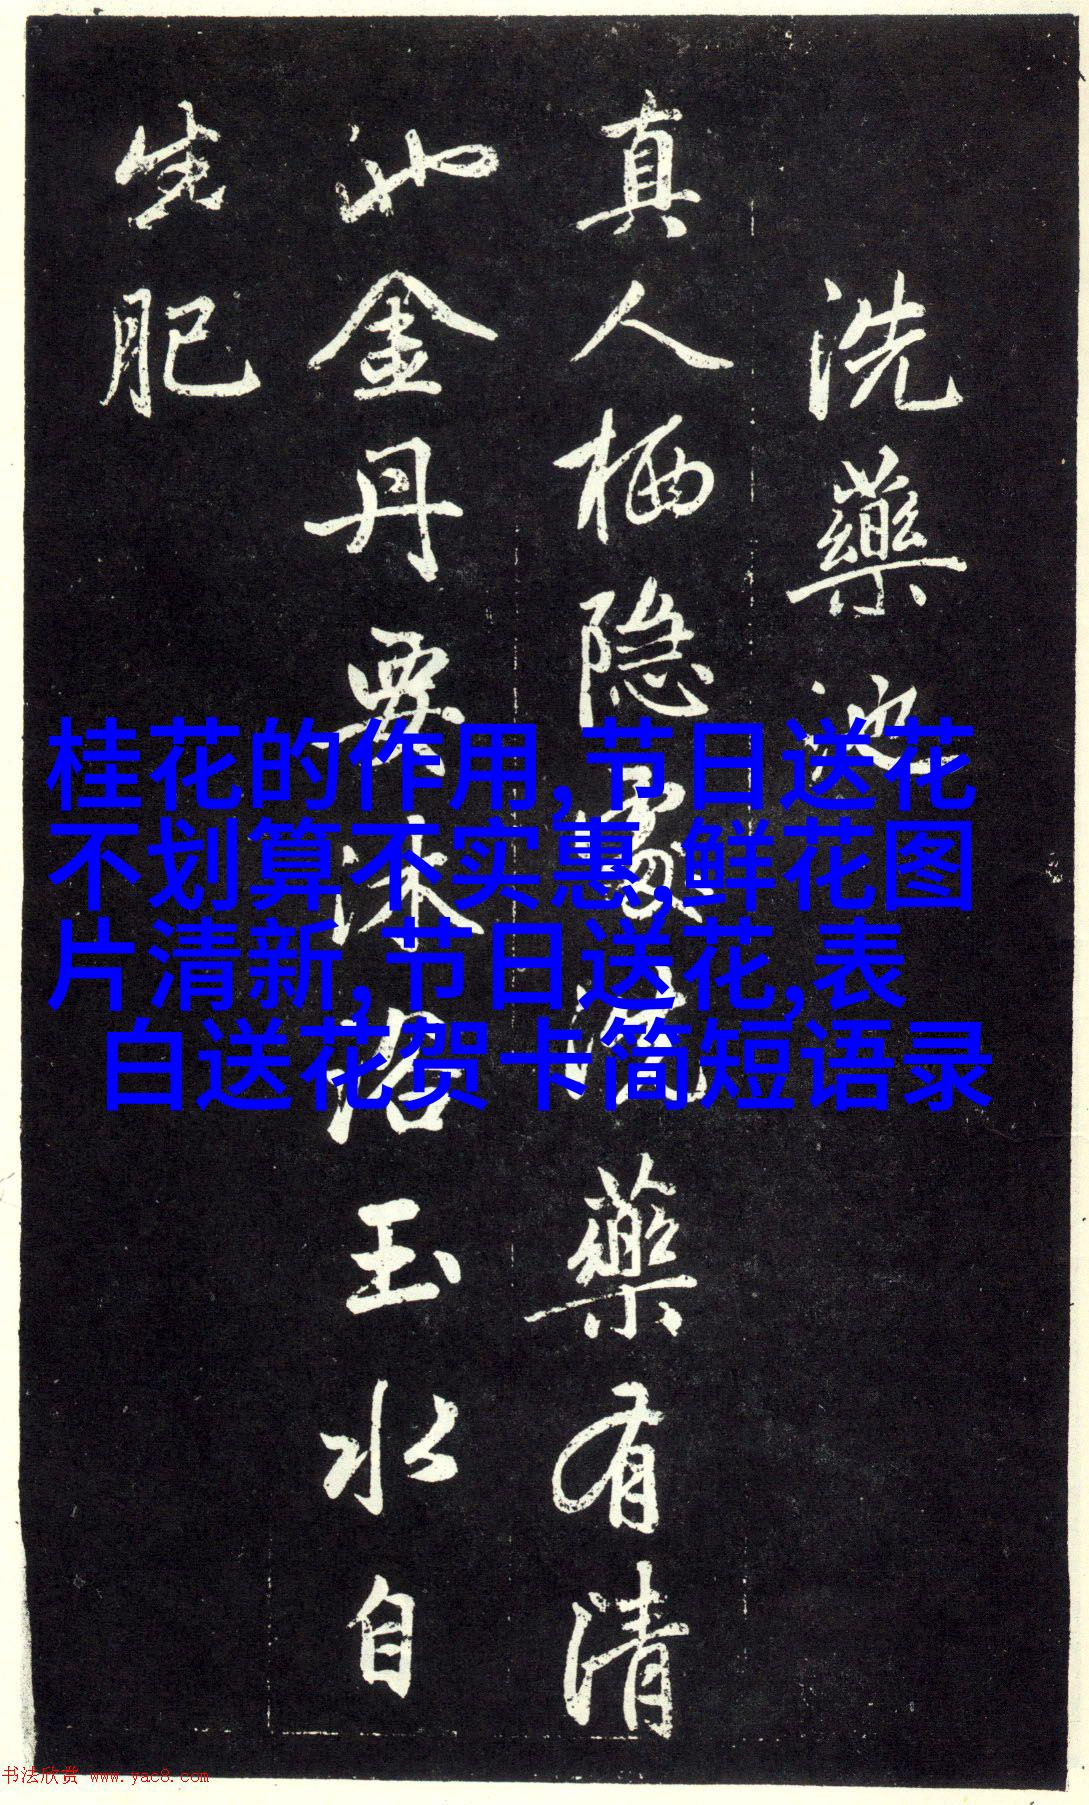 洗藥池
真人栖隐處洗藥有清
池金丹要沐浴玉水自
生肥
桂花的作用,节日送花
不划算不实惠,鲜花图
片清新,节日送花,表
白送花贺卡简短语录
书法欣赏 www.yac8.com